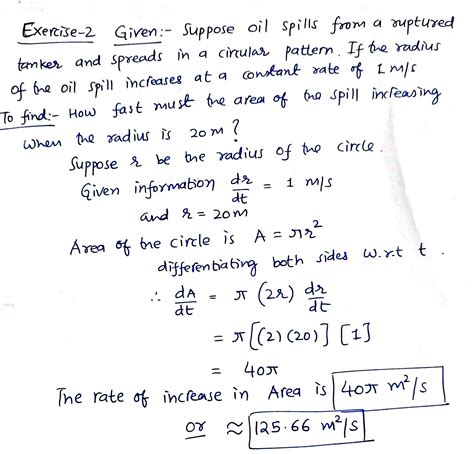 Exercise-2 Given:- Suppose oil spills from a ruptured
tanker and spreads in a circular pattern. If the radius
of the oil spill increases at a constant rate of 1 m/s
To find:- How fast must the area of the spill increasing
when the radius is 20m?
Suppose r be the radius of the circle.
Given information dr/dt = 1 m/s
and r = 20m
Area of the circle is A = πr²
differentiating both sides w.r.t t.
∴ dA/dt = π (2r) dr/dt
= π[(2)(20)] [1]
= 40π
The rate of increase in Area is 40π m²/s
or ≈ 125.66 m²/s